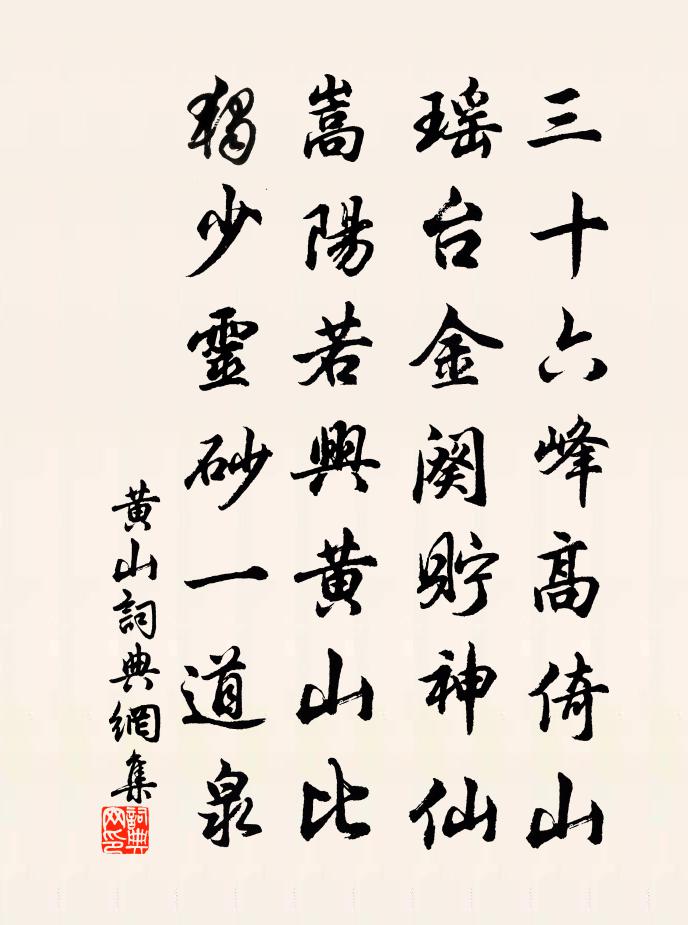 三十六峰高倚山
瑶台金阙貯神仙
嵩陽若興黄山比
獨少靈砂一道泉
黄山詞典網集
詞典网印